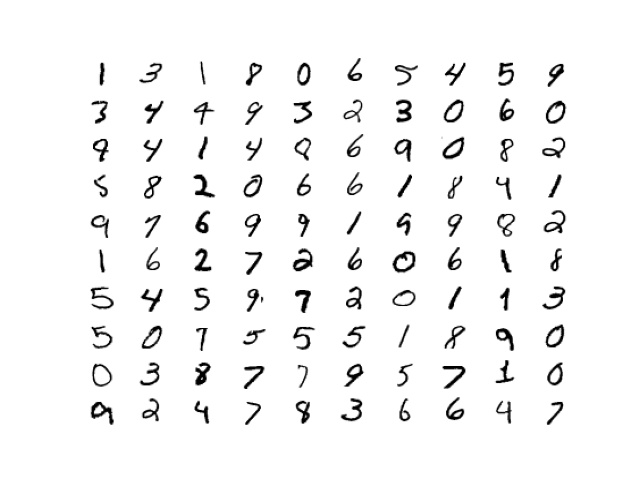 1 3 1 8 0 6 5 4 5 9
3 4 4 9 3 2 3 0 6 0
9 4 1 4 8 6 9 0 8 2
5 8 2 0 6 6 1 8 4 1
9 7 6 9 9 1 9 9 8 2
1 6 2 7 2 6 0 6 1 8
5 4 5 9 7 2 0 1 1 3
5 0 7 5 5 5 1 8 9 0
0 3 8 7 7 9 5 7 1 0
9 2 4 7 8 3 6 6 4 7